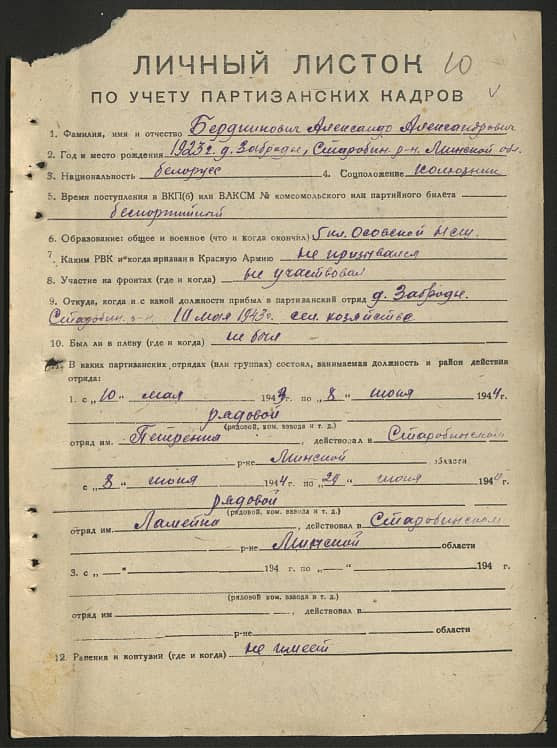 ЛИЧНЫЙ ЛИСТОК 10
ПО УЧЕТУ ПАРТИЗАНСКИХ КАДРОВ
1. Фамилия, имя и отчество Бердникович Александр Александрович
2. Год и место рождения 1923 г. д. Забродье, Старобин. р-н. Минской обл.
3. Национальность белорус 4. Соцположение колхозник
5. Время поступления в ВКП(б) или ВЛКСМ № комсомольского или партийного билета
беспартийный
6. Образование: общее и военное (что и когда окончил) 5 кл. Осовской нсш.
7. Каким РВК и когда призван в Красную Армию не призывался
8. Участие на фронтах (где и когда) не участвовал
9. Откуда, когда и с какой должности прибыл в партизанский отряд д. Забродье.
Старобин. р-н. 10 мая 1943 г. сел. хозяйство
10. Был ли в плену (где и когда) не был
В каких партизанских отрядах (или группах) состоял, занимаемая должность и район действия
отряда:
1. с „10" мая 1943 г. по „8 июня 1944 г.
рядовой
(рядовой, ком. взвода и т. д.)
отряд им. , действовал в Старобинском
р-не Минской области
с „8 " июня 1944 г. по „29 " июня 194 г.
рядовой
(рядовой, ком. взвода и т. д.)
отряд им. , действовал в Старобинском
р-не Минской области
3. с „ " 194 г. по „ " 194 г.
(рядовой, ком. взвода и т. д.)
отряд им , действовал в
р-не области
12. Ранения и контузии (где и когда) не имеет